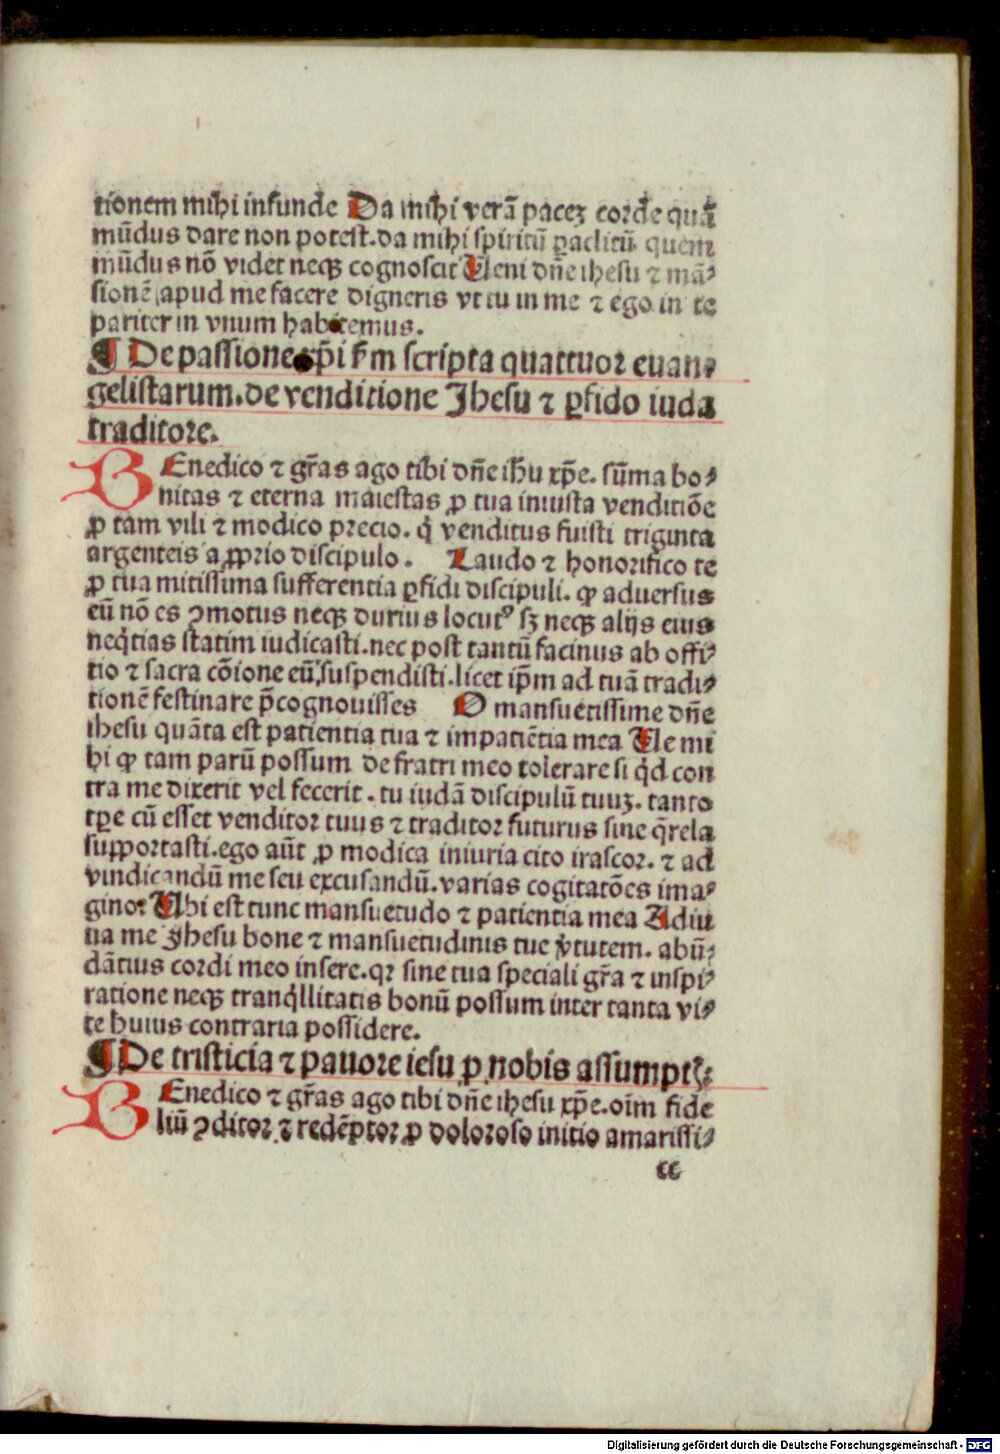 tionem mihi infunde Da mihi verã pacez corde quã
mũdus dare non potest.da mihi spiritũ ꝑaclitũ quem
mũdus nõ videt neqꝫ cognoscit Ueni dñe ihesu ⁊ mã⸗
sionẽ apud me facere digneris vt tu in me ⁊ ego in te
pariter in vnum habitemus.
¶ De passione xp̄i s̄m scripta quattuor euan⸗
gelistarum.de venditione Jhesu ⁊ ꝑfido iuda
traditore.
BEnedico ⁊ gr̄as ago tibi dñe ih̄u xp̄e. sũma bo⸗
nitas ⁊ eterna maiestas ꝓ tua iniusta venditiõe
ꝓ tam vili ⁊ modico precio. q̇ venditus fuisti triginta
argenteis a ꝓprio discipulo. Laudo ⁊ honorifico te
ꝓ tua mitissima sufferentia ꝑfidi discipuli. ꝙ aduersus
eũ nõ es ꝯmotus neqꝫ durius locutꝰ sꝫ neqꝫ alijs eius
neq̇tias statim iudicasti.nec post tantũ facinus ab offi⸗
tio ⁊ sacra cõione eũ suspendisti.licet ip̄m ad tuã tradi⸗
tionẽ festinare p̄cognouisses O mansuetissime dñe
ihesu quãta est patientia tua ⁊ impatiẽtia mea Ue mi
hi ꝙ tam parũ possum de fratri meo tolerare si q̇d con
tra me dixerit vel fecerit. tu iudã discipulũ tuuꝫ. tanto
tꝑe cũ esset venditor tuus ⁊ traditor futurus sine q̄rela
supportasti.ego aũt ꝓ modica iniuria cito irascor. ⁊ ad
vindicandũ me seu excusandũ.varias cogitatões ima⸗
ginor Ubi est tunc mansuetudo ⁊ patientia mea Adiu
ua me Jhesu bone ⁊ mansuetudinis tue v̇tutem. abũ⸗
dãtius cordi meo insere.qꝛ sine tua speciali gr̄a ⁊ inspi⸗
ratione neqꝫ tranq̇llitatis bonũ possum inter tanta vi⸗
te huius contraria possidere.
¶ De tristicia ⁊ pauore iesu ꝓ nobis assumptꝫ.
BEnedico ⁊ gr̄as ago tibi dñe ihesu xp̄e.oĩm fide
liũ ꝯditor ⁊ redẽptor ꝓ doloroso initio amarissi⸗
cc
Digitalisierung gefördert durch die Deutsche Forschungsgemeinschaft - DFG